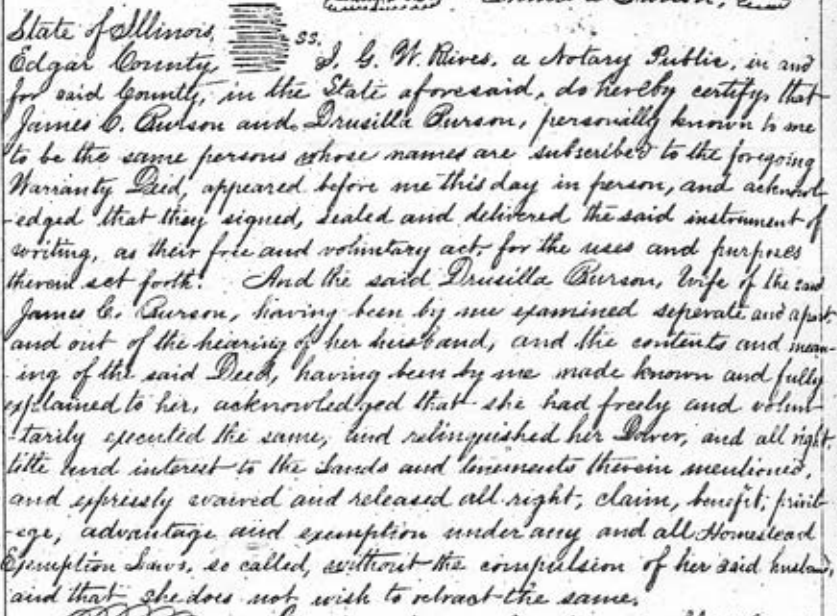 State of Illinois
Edgar County ss. I, G. W. Rives, a Notary Public, in and
for said County, in the State aforesaid, do hereby certify, that
James C. Burson and Drusilla Burson, personally known to me
to be the same persons whose names are subscribed to the foregoing
Warranty Deed, appeared before me this day in person, and acknowl
-edged that they signed, sealed and delivered the said instrument of
writing, as their free and voluntary act, for the uses and purposes
therein set forth. And the said Drusilla Burson, Wife of the said
James C. Burson, having been by me examined seperate and apart
and out of the hearing of her husband, and the contents and mean-
-ing of the said Deed, having been by me made known and fully
explained to her, acknowledged that she had freely and volun-
-tarily executed the same, and relinquished her Dower, and all right,
title and interest to the Lands and tenements therein mentioned,
and expressly waived and released all right, claim, benefit, privil-
-ege, advantage and exemption under any and all Homestead
Exemption Laws, so called, without the compulsion of her said husband,
and that she does not wish to retract the same.